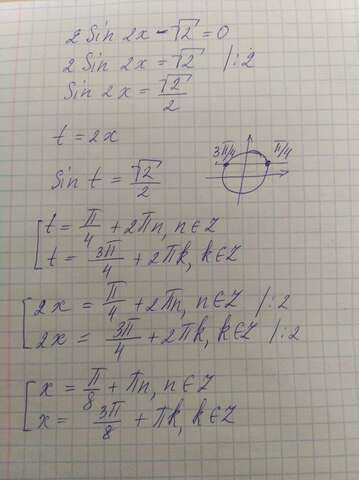 2 Sin 2x - √2 = 0
2 Sin 2x = √2 /:2
Sin 2x = √2/2
t = 2x
3π/4 π/4
Sin t = √2/2
[ t = π/4 + 2πn, n∈Z
t = 3π/4 + 2πk, k∈Z
[ 2x = π/4 + 2πn, n∈Z /:2
2x = 3π/4 + 2πk, k∈Z /:2
[ x = π/8 + πn, n∈Z
x = 3π/8 + πk, k∈Z